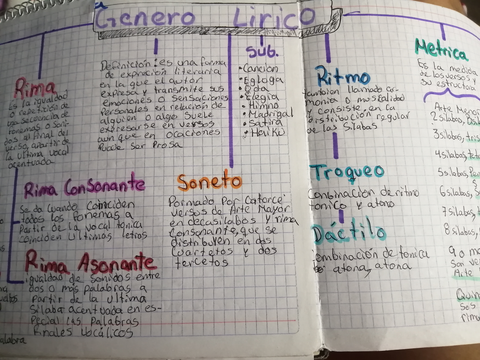 Genero Lirico
Rima
Es la igualdad
o repetición de
una secuencia de
fonemas o soni-
dos al final del
verso, apartir de
la ultima vocal
acentuada.
Definición: es una forma
de expresión literaria
en la que el autor
expresa y transmite sus
emociones o sensaciones
personales en relacion de
alguien o algo suele
expresarse en versos
aun que en ocaciones
puede ser prosa
SUB.
• Cancion
• Egloga
• Oda
• Elegia
• Himno
• Madrigal
• Satira
• Heiku
Ritmo
tambien llamado ar-
monia o musalidad
consiste, en la
distribución regular
de las silabas
Metrica
Es la medida
de los versos y
su estructura
Arte Menor
2 silabas,
3 silabas,
4 silabas,
5 silabas,
6 silabas,
7 silabas,
8 silabas,
Rima Consonante
Se da cuando coinciden
todos los fonemas a
partir de la vocal tonica
coinciden ultimas letras
Soneto
Formado por catorce
versos de Arte Mayor
en decasilabos y rima
consonante, que se
distribuyen en dos
cuartetos y dos
tercetos
Troqueo
Combinacion de ritmo
tonico y atono
Dáctilo
Combinación de tonica
atona, atona
9 o m
son ve
Arte
Quin
Rima Asonante
igualdad de sonidos entre
dos o más palabras a
partir de la ultima
silaba acentuada en es-
pecial las palabras
finales vocálicos